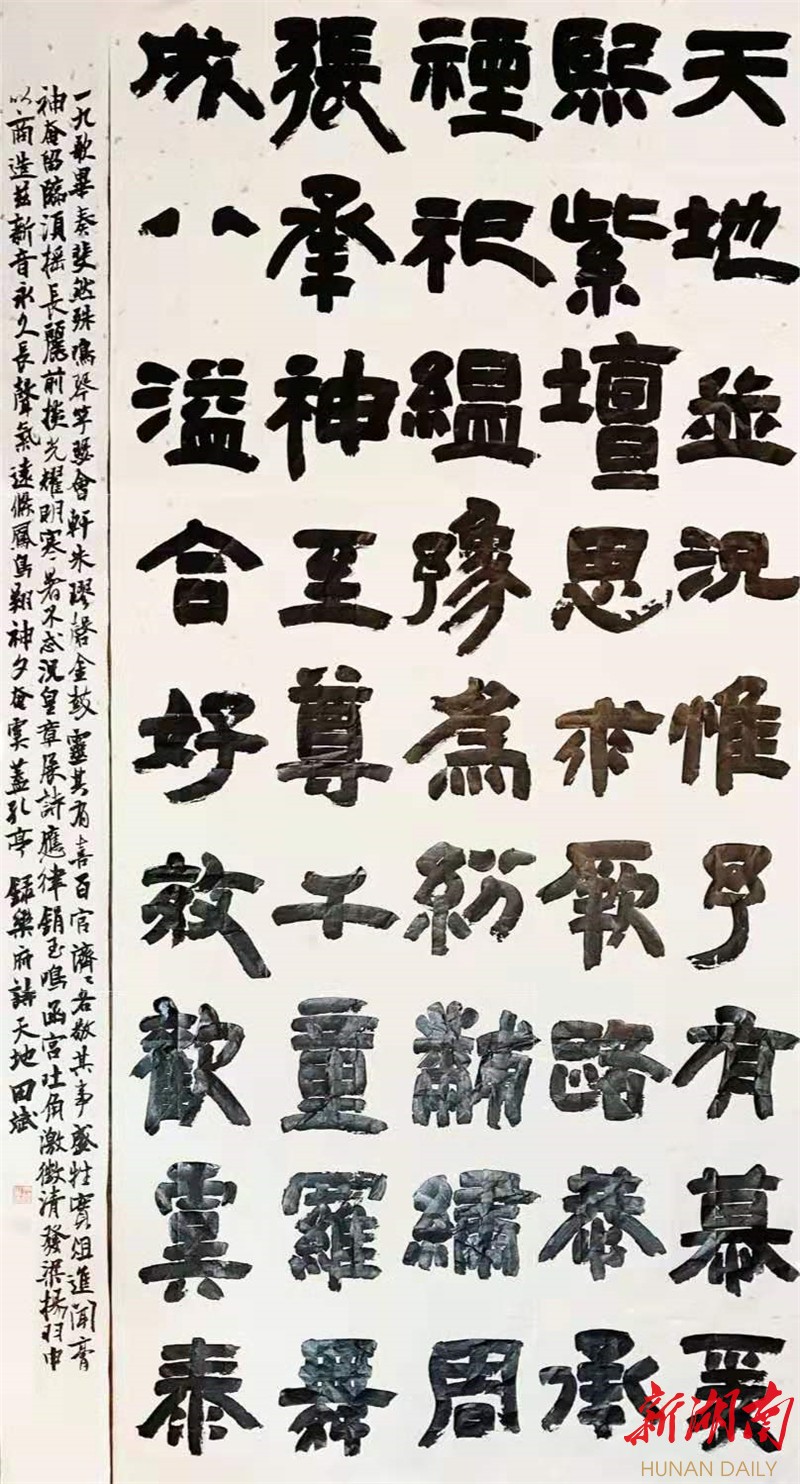 天地並況惟予有慕爰
熙紫壇思求厥路恭承
禋祀縕豫為紛黼繡周
張承神至尊千童羅舞
成八溢合好效歡虞泰
一九歌畢奏斐然殊鳴琴竽瑟會軒朱璆磬金鼓靈其有喜百官濟〻各敬其事盛牲實俎進聞膏
神奄留臨須搖長麗前掞光耀明寒暑不忒況皇章展詩應律鋗玉鳴函宮吐角激徵清發梁揚羽申
以商造茲新音永久長聲氣遠條鳳鳥翔神夕奄虞蓋孔亭 錄樂府詩天地 田斌
新湖南
HUNAN DAILY